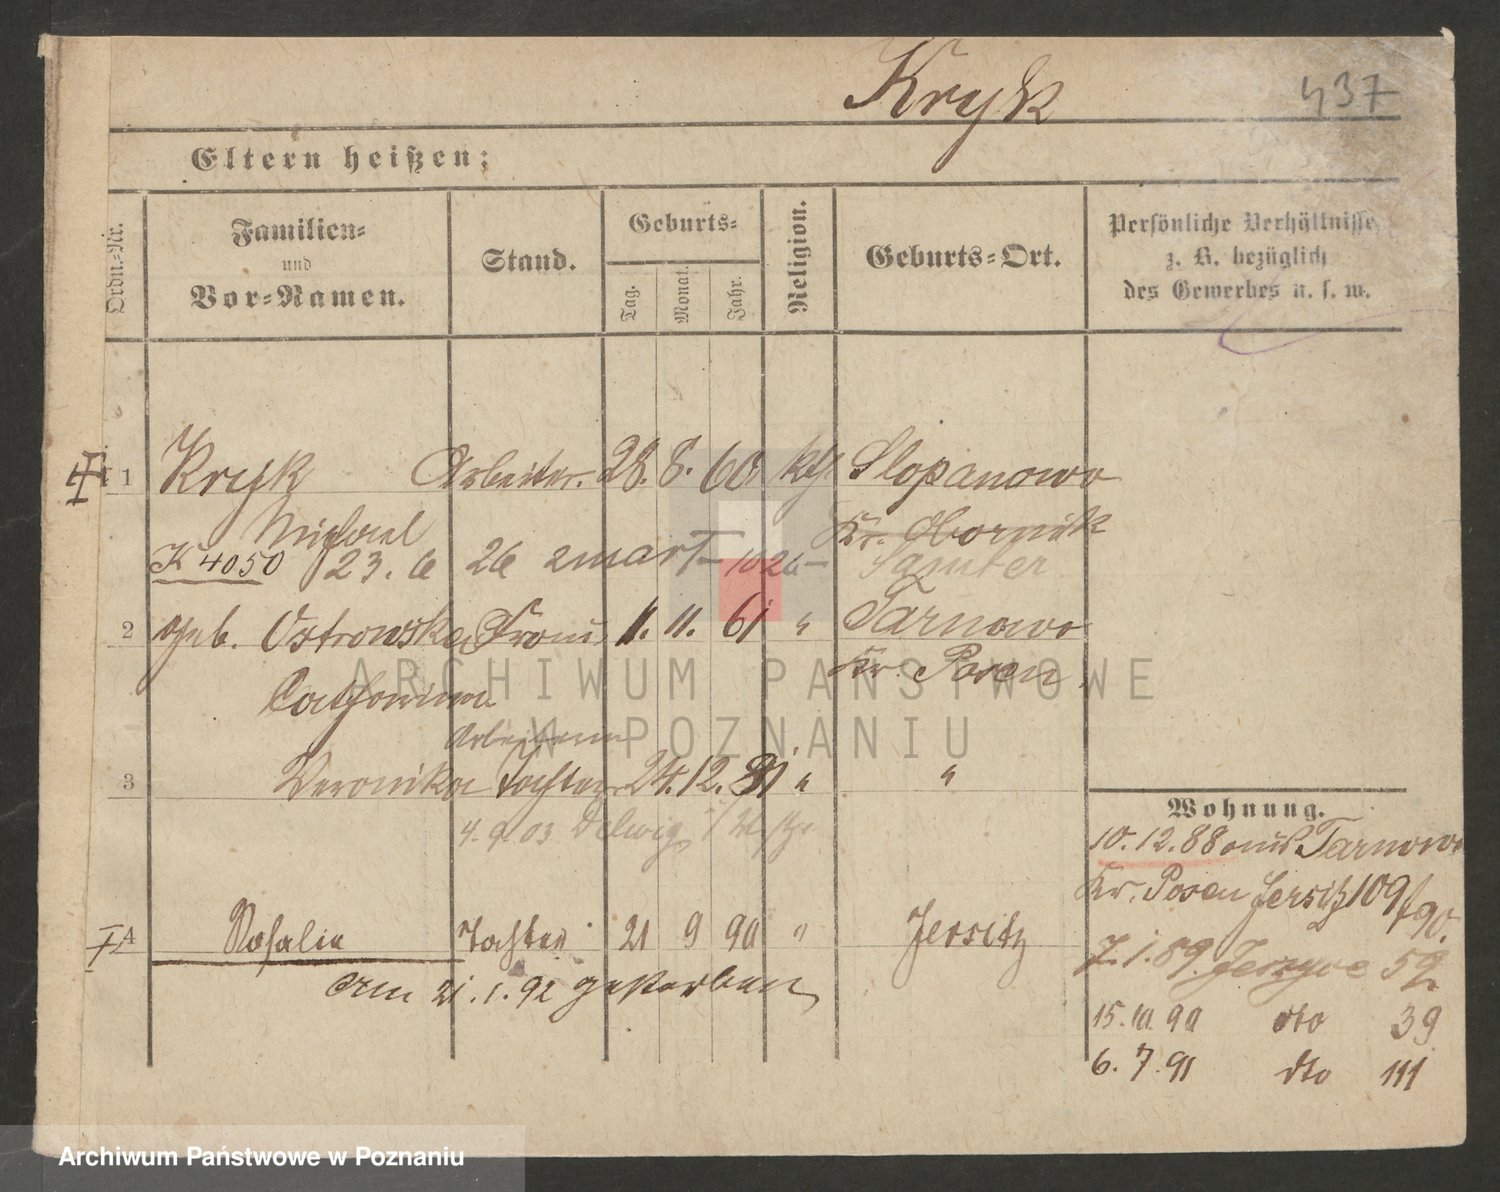 Kryk 437
Eltern heißen:
Ordn.-Nr.
Familien-
und
Vor-Namen.
Stand.
Geburts-
Tag.
Monat.
Jahr.
Religion.
Geburts-Ort.
Persönliche Verhältnisse
z. B. bezüglich
des Gewerbes u. s. w.
1 Kryk Arbeiter. 28. 8. 60 kth. Slopanowo
Michael Kr. Obornik
K 4050 23. 6 26 zmarł 1026 Samter
2 geb. Ostrowska Frau 11. 11. 61 " Tarnowo
Catharina Kr. Posen
Arbeiterin
3 Veronika Tochter 24. 12. 81 " "
4. 9. 03
4 Rosalie Tochter 21 9 90 " Jersitz
Am 21. 1. 92 gestorben
Wohnung.
10. 12. 88 aus Tarnowo
Kr. Posen Jersitz 109/90.
7. 1. 89. 59
15. 10. 90 dto 39
6. 7. 91 dto 111
ARCHIWUM PAŃSTWOWE
W POZNANIU
Archiwum Państwowe w Poznaniu